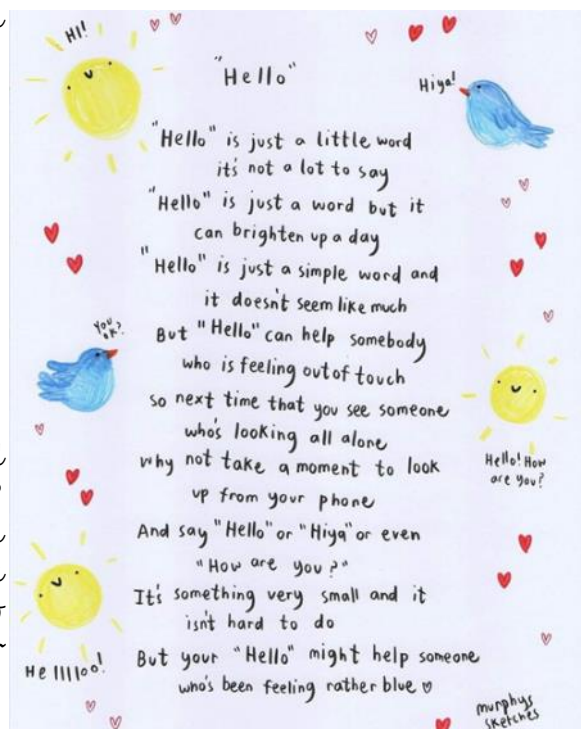 HI!
"Hello"
Hiya!
"Hello" is just a little word
it's not a lot to say
"Hello" is just a word but it
can brighten up a day
"Hello" is just a simple word and
it doesn't seem like much
You
OK?
But "Hello" can help somebody
who is feeling out of touch
so next time that you see someone
who's looking all alone
why not take a moment to look
up from your phone
Hello! How
are you?
And say "Hello" or "Hiya" or even
"How are you?"
It's something very small and it
isn't hard to do
Helllloo!
But your "Hello" might help someone
who's been feeling rather blue
murphys
sketches